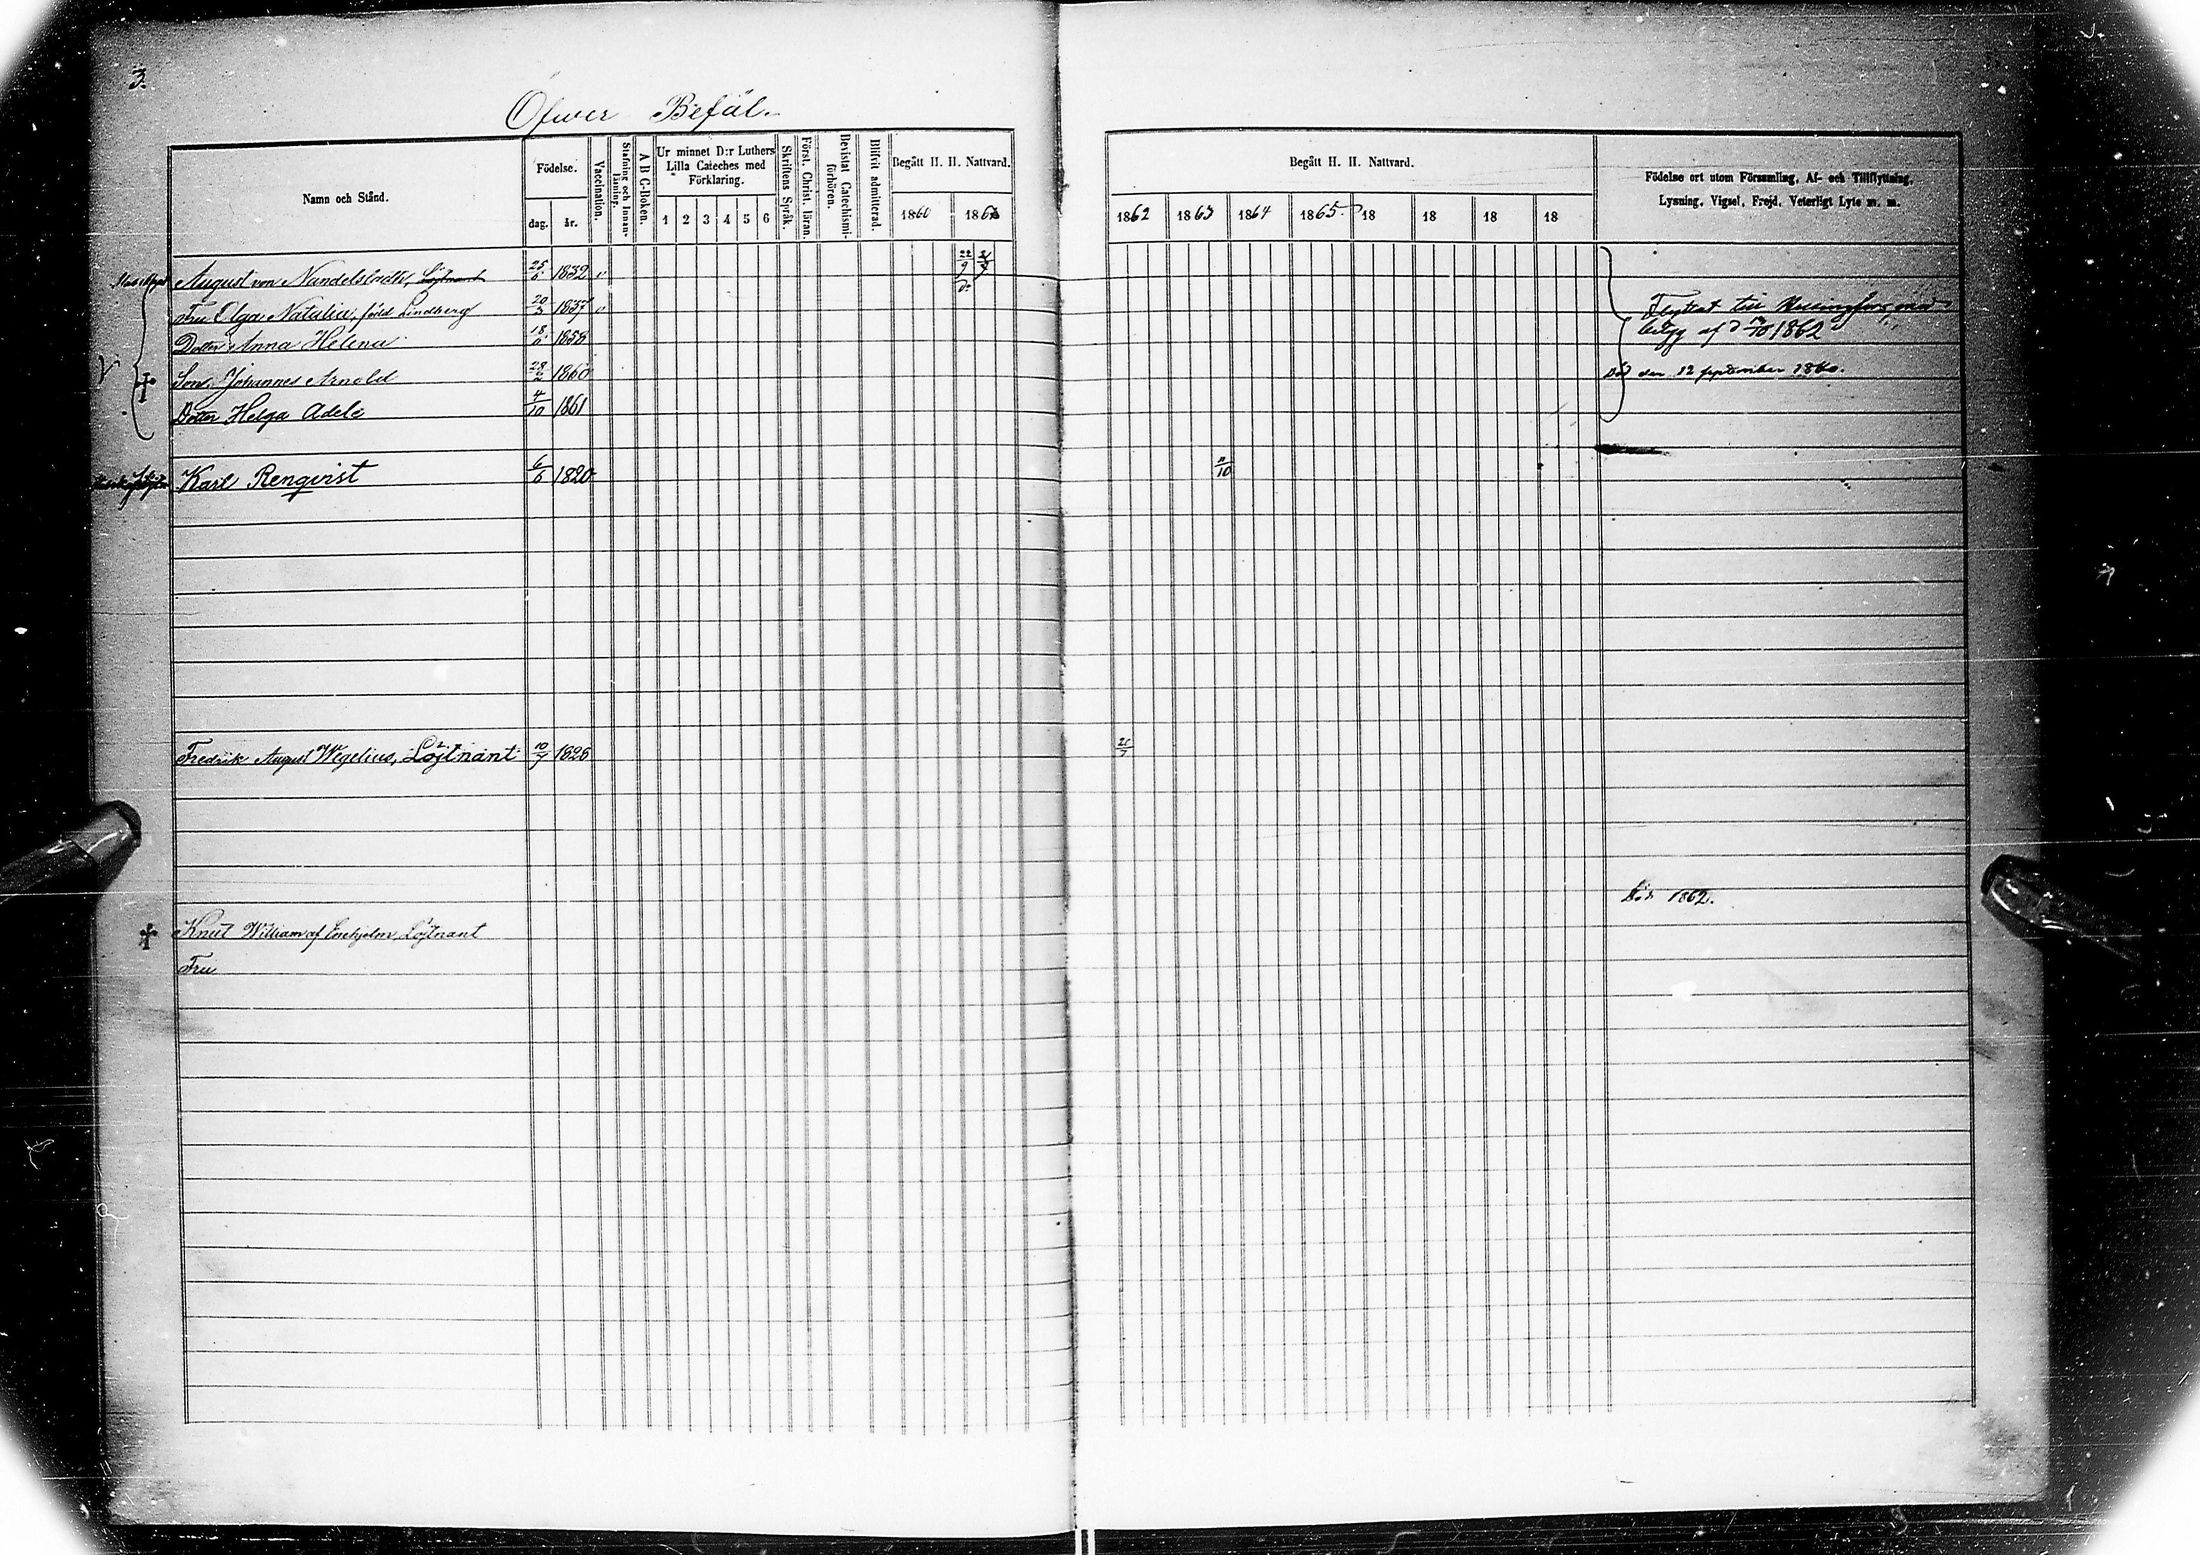 3.
Öfwer Befäl.
Namn och Stånd.
Födelse.
dag. år.
Vaccination.
Stafning och Innan-läsning.
A B C-Boken.
Ur minnet D:r Luthers Lilla Cateches med Förklaring.
1 2 3 4 5 6
Skriftens Språk.
Först. Christ. läran.
Bevistat Catechismi-förhören.
Blifvit admitterad.
Begått H. H. Nattvard.
1860 186
Begått H. H. Nattvard.
1862 1863 1864 1865. 18 18 18 18
Födelse ort utom Församling, Af- och Tillflyttning,
Lysning, Vigsel, Frejd, Veterligt Lyte m. m.
August von Nandelstadts, Löjtnant 25/6 1832 22/9
Fru Olga Natalia, född Lindberg 20/3 1837
Flyttat till Helsingfors med
Dotter Anna Helena 18/6 1858
betyg af d 10 1862
Son, Johannes Arnold 28/2 1860
Död den 12 september 1860.
Dotter Helga Adele 4/10 1861
Karl Renqvist 6/6 1820 11/10
Fredrik August Wegelius, Löjtnant 10/7 1826 21/7
Död 1862.
Knut William af Enehjelm, Löjtnant
Fru